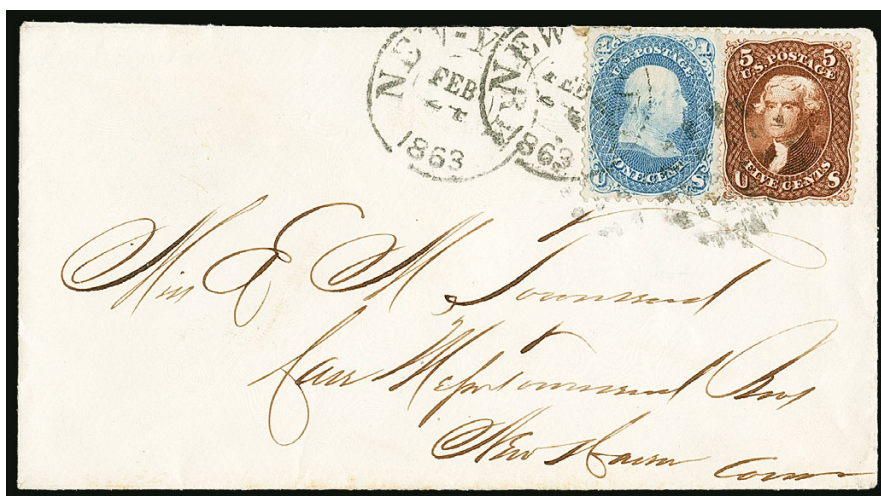 NEW-Y
FEB
1863
NEW
FEB
1863
1 1
U.S. POSTAGE
ONE CENT
U S
5 5
U.S. POSTAGE
FIVE CENTS
U S
Miss E M Townsend
Care Messrs Townsend Bros
New Haven Conn